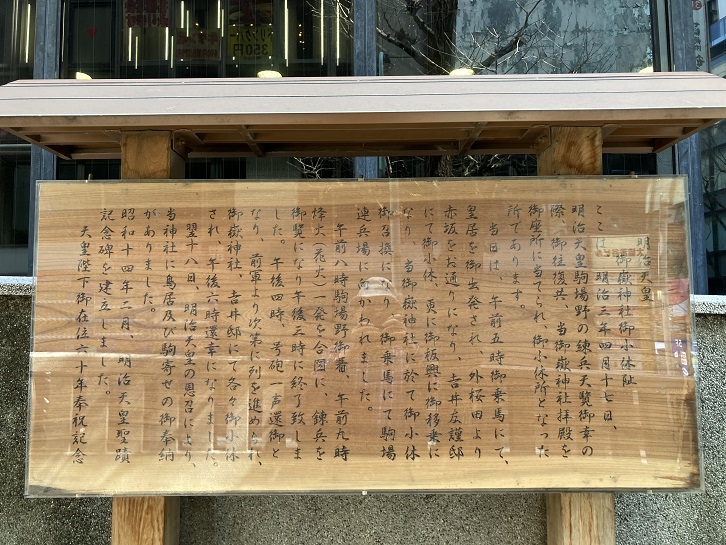 明治天皇
御嶽神社御小休阯
ここは、明治三年四月十七日、
明治天皇駒場野の練兵天覧御幸の
際、御往復共、当御嶽神社拝殿を
御座所に当てられ、御小休所となった
所であります。
当日は、午前五時御乗馬にて、
皇居を御出発され、外桜田より
赤坂をお通りになり、吉井友謹邸
にて御小休、更に御板輿に御移乗に
なり、当御嶽神社に於て御小休
御召換になり、御乗馬にて駒場
連兵場に向かわれました。
午前八時駒場野御着、午前九時
烽火（花火）一発を合図に、錬兵を
御覧になり午後三時に終了致しま
した。午後四時、号砲一声還御と
なり、前軍より次第に列を進められ、
御嶽神社、吉井邸にて各々御小休
され、午後六時還幸になりました。
翌十八日、明治天皇の恩召により、
当神社に鳥居及び駒寄せの御奉納
がありました。
昭和十四年二月、明治天皇聖蹟
記念碑を建立しました。
天皇陛下御在位六十年奉祝記念
350円